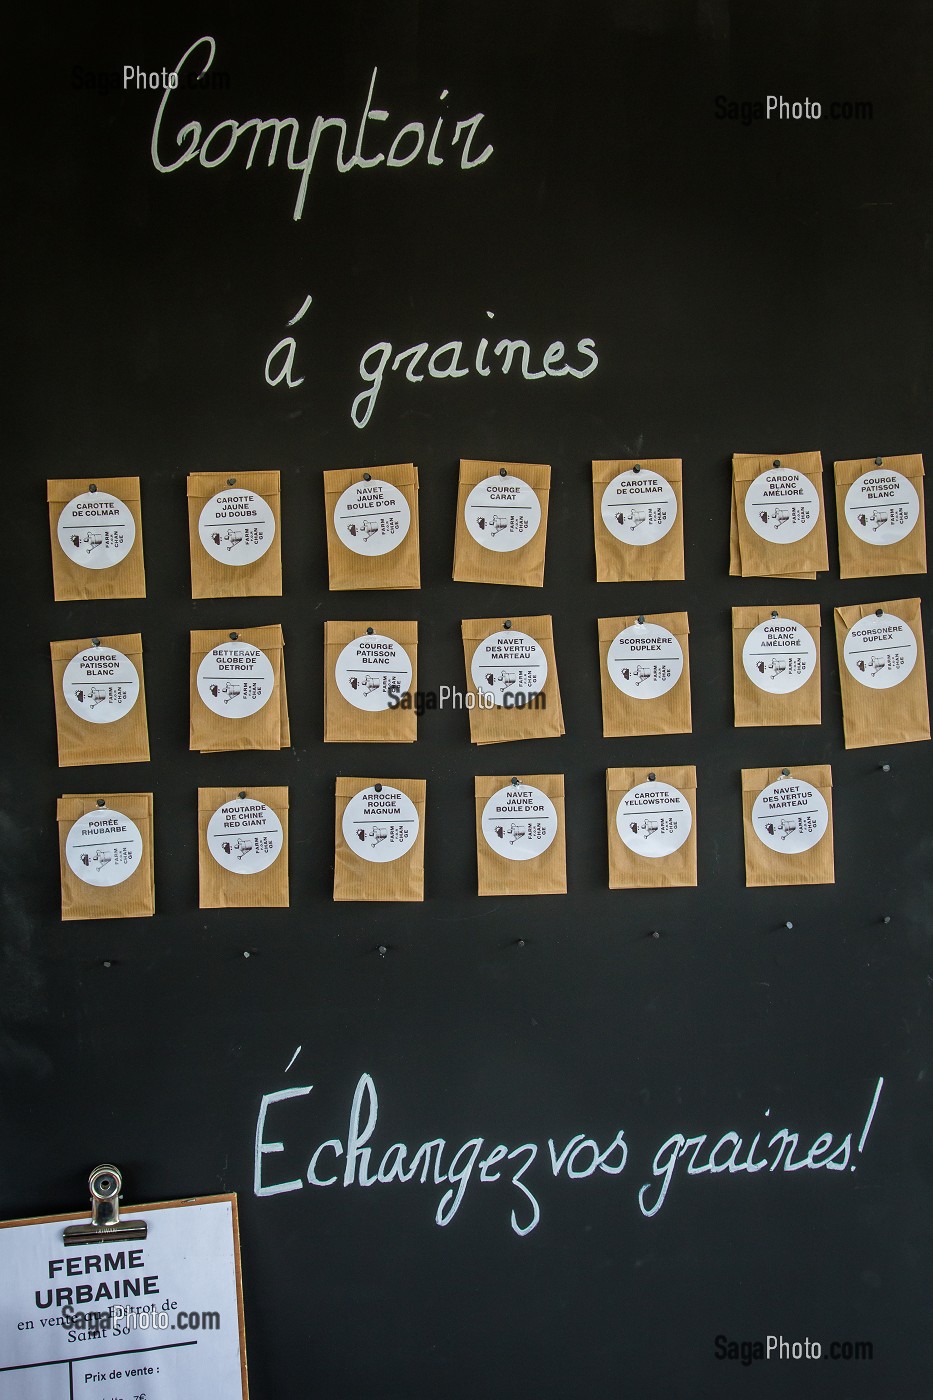 Comptoir
á graines
CAROTTE
DE COLMAR
FARM
FOR
CHAN
GE
CAROTTE
JAUNE
DU DOUBS
FARM
FOR
CHAN
GE
NAVET
JAUNE
BOULE D'OR
FARM
FOR
CHAN
GE
COURGE
CARAT
FARM
FOR
CHAN
GE
CAROTTE
DE COLMAR
FARM
FOR
CHAN
GE
CARDON
BLANC
AMÉLIORÉ
FARM
FOR
CHAN
GE
COURGE
PATISSON
BLANC
FARM
FOR
CHAN
GE
COURGE
PATISSON
BLANC
FARM
FOR
CHAN
GE
BETTERAVE
GLOBE DE
DETROIT
FARM
FOR
CHAN
GE
COURGE
PATISSON
BLANC
FARM
FOR
CHAN
GE
NAVET
DES VERTUS
MARTEAU
FARM
FOR
CHAN
GE
SCORSONÈRE
DUPLEX
FARM
FOR
CHAN
GE
CARDON
BLANC
AMÉLIORÉ
FARM
FOR
CHAN
GE
SCORSONÈRE
DUPLEX
FARM
FOR
CHAN
GE
POIRÉE
RHUBARBE
FARM
FOR
CHAN
GE
MOUTARDE
DE CHINE
RED GIANT
FARM
FOR
CHAN
GE
ARROCHE
ROUGE
MAGNUM
FARM
FOR
CHAN
GE
NAVET
JAUNE
BOULE D'OR
FARM
FOR
CHAN
GE
CAROTTE
YELLOWSTONE
FARM
FOR
CHAN
GE
NAVET
DES VERTUS
MARTEAU
FARM
FOR
CHAN
GE
Échangez vos graines!
FERME
URBAINE
en vente au Bistrot de
Saint So
Prix de vente :
7€
SagaPhoto.com
SagaPhoto.com
SagaPhoto.com
SagaPhoto.com
SagaPhoto.com